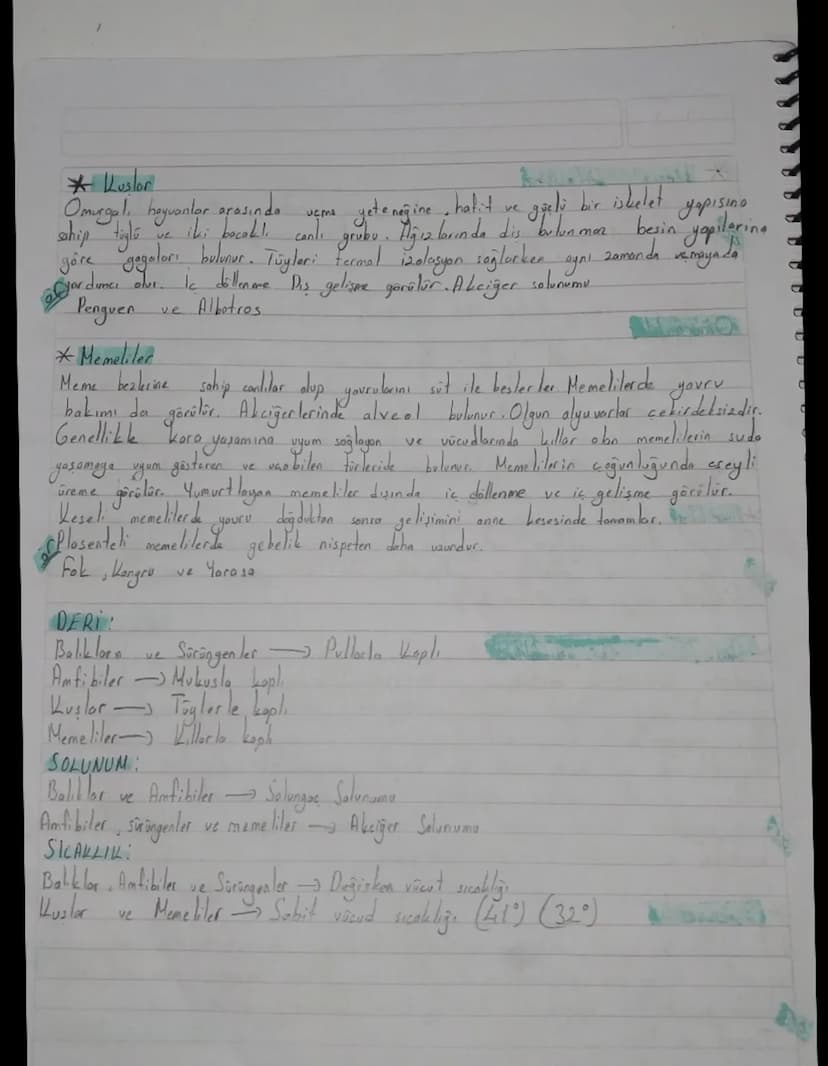 * Kuşlar
Omurgalı hayvanlar arasında uçma yeteneğine, hafif ve güçlü bir iskelet yapısına
sahip tüylü ve iki bacaklı canlı grubu. Ağızlarında diş bulunmaz besin yapılarına
göre gagaları bulunur. Tüyleri termal izolasyon sağlarken aynı zamanda uçmayada
yardımcı olur. İç döllenme Dış gelişme görülür. Akciğer solunumu
ör Penguen ve Albatros
* Memeliler
Meme bezlerine sahip canlılar olup yavrularını süt ile beslerler Memelilerde yavru
bakımı da görülür. Akciğerlerinde alveol bulunur. Olgun alyuvarlar çekirdeksizdir.
Genellikle kara yaşamına uyum sağlayan ve vücudlarında kıllar olan memelilerin suda
yaşamaya uyum gösteren ve uçabilen türleride bulunur. Memelilerin çoğunluğunda eşeyli
üreme görülür. Yumurtlayan memeliler dışında iç döllenme ve iç gelişme görülür.
Keseli memelilerde yavru doğduktan sonra gelişimini anne kesesinde tamamlar.
Plasentalı memelilerde gebelik nispeten daha uzundur.
ör Fok, Kanguru ve Yarasa
DERİ:
Balıklara ve Sürüngenler → Pullarla Kaplı
Amfibiler → Mukusla kaplı
Kuşlar → Tüylerle kaplı
Memeliler → Kıllarla kaplı
SOLUNUM:
Balıklar ve Amfibiler → Solungaç Solunumu
Amfibiler, sürüngenler ve memeliler → Akciğer Solunumu
SICAKLIK:
Balıklar, Amfibiler ve Sürüngenler → Değişken vücut sıcaklığı
Kuşlar ve Memeliler → Sabit vücud sıcaklığı (41°) (32°)